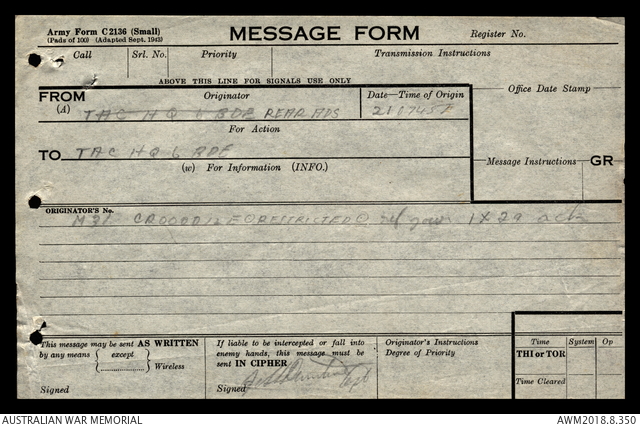 Army Form C2136 (Small)
(Pads of 100) (Adapted Sept. 1943)
MESSAGE FORM
Register No.
Call Srl. No. Priority Transmission Instructions
ABOVE THIS LINE FOR SIGNALS USE ONLY
Office Date Stamp
FROM Originator Date—Time of Origin
(A) TAC HQ 6 BDE REAR ADS 210745
For Action
TO TAC HQ 6 BDE
(w) For Information (INFO.)
Message Instructions GR
ORIGINATOR'S No.
RESTRICTED 1X29 ack
This message may be sent AS WRITTEN
by any means { except
Wireless
Signed
If liable to be intercepted or fall into
enemy hands, this message must be
sent IN CIPHER
Signed Capt
Originator's Instructions
Degree of Priority
Time System Op
THI or TOR
Time Cleared
AUSTRALIAN WAR MEMORIAL AWM2018.8.350